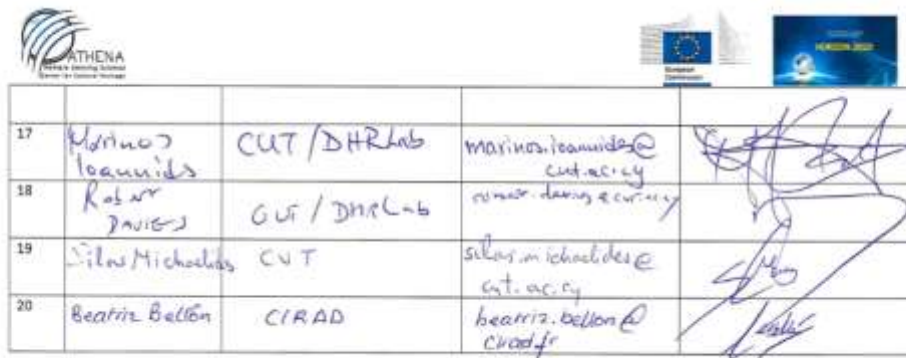 ATHENA
Remote Sensing Science
Center for Cultural Heritage
European
Commission
HORIZON 2020
17 Marinos Ioannids CUT/DHRLab marinos.ioannides@cut.ac.cy
18 Robert DAVIES CUT/DHRLab
19 Silas Michaelides CUT silas.michaelides@cut.ac.cy
20 Beatriz Bellón CIRAD beatriz.bellon@cirad.fr